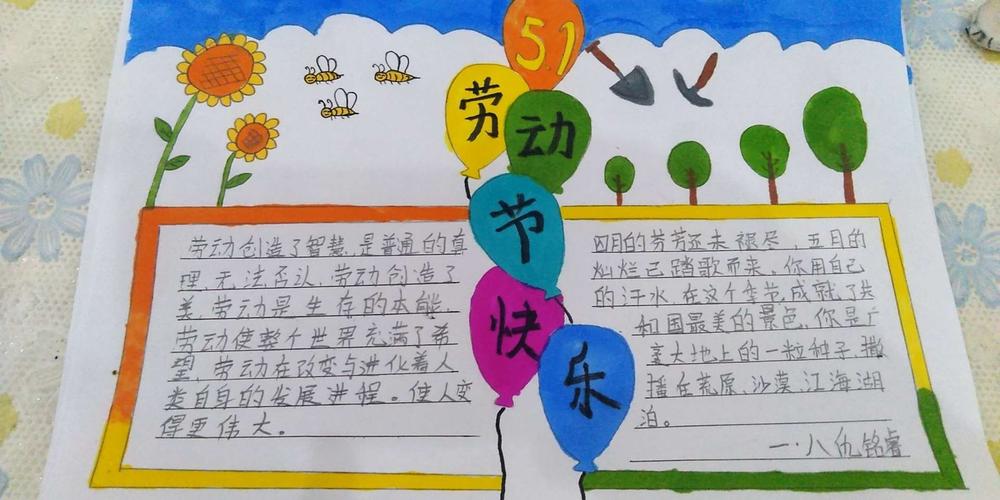 5.1
劳
动
节
快
乐
劳动创造了智慧,是普通的真
理,无法否认,劳动创造了
美,劳动是生存的本能,
劳动使整个世界充满了希
望,劳动在改变与进化着人
类自身的发展进程。使人变
得更伟大。
四月的芬芳还未褪尽,五月的
灿烂已踏歌而来。你用自己
的汗水,在这个季节,成就了共
和国最美的景色,你是广
大地上的一粒种子,撒
播在荒原、沙漠、江海湖
泊。
一·八仇铭睿